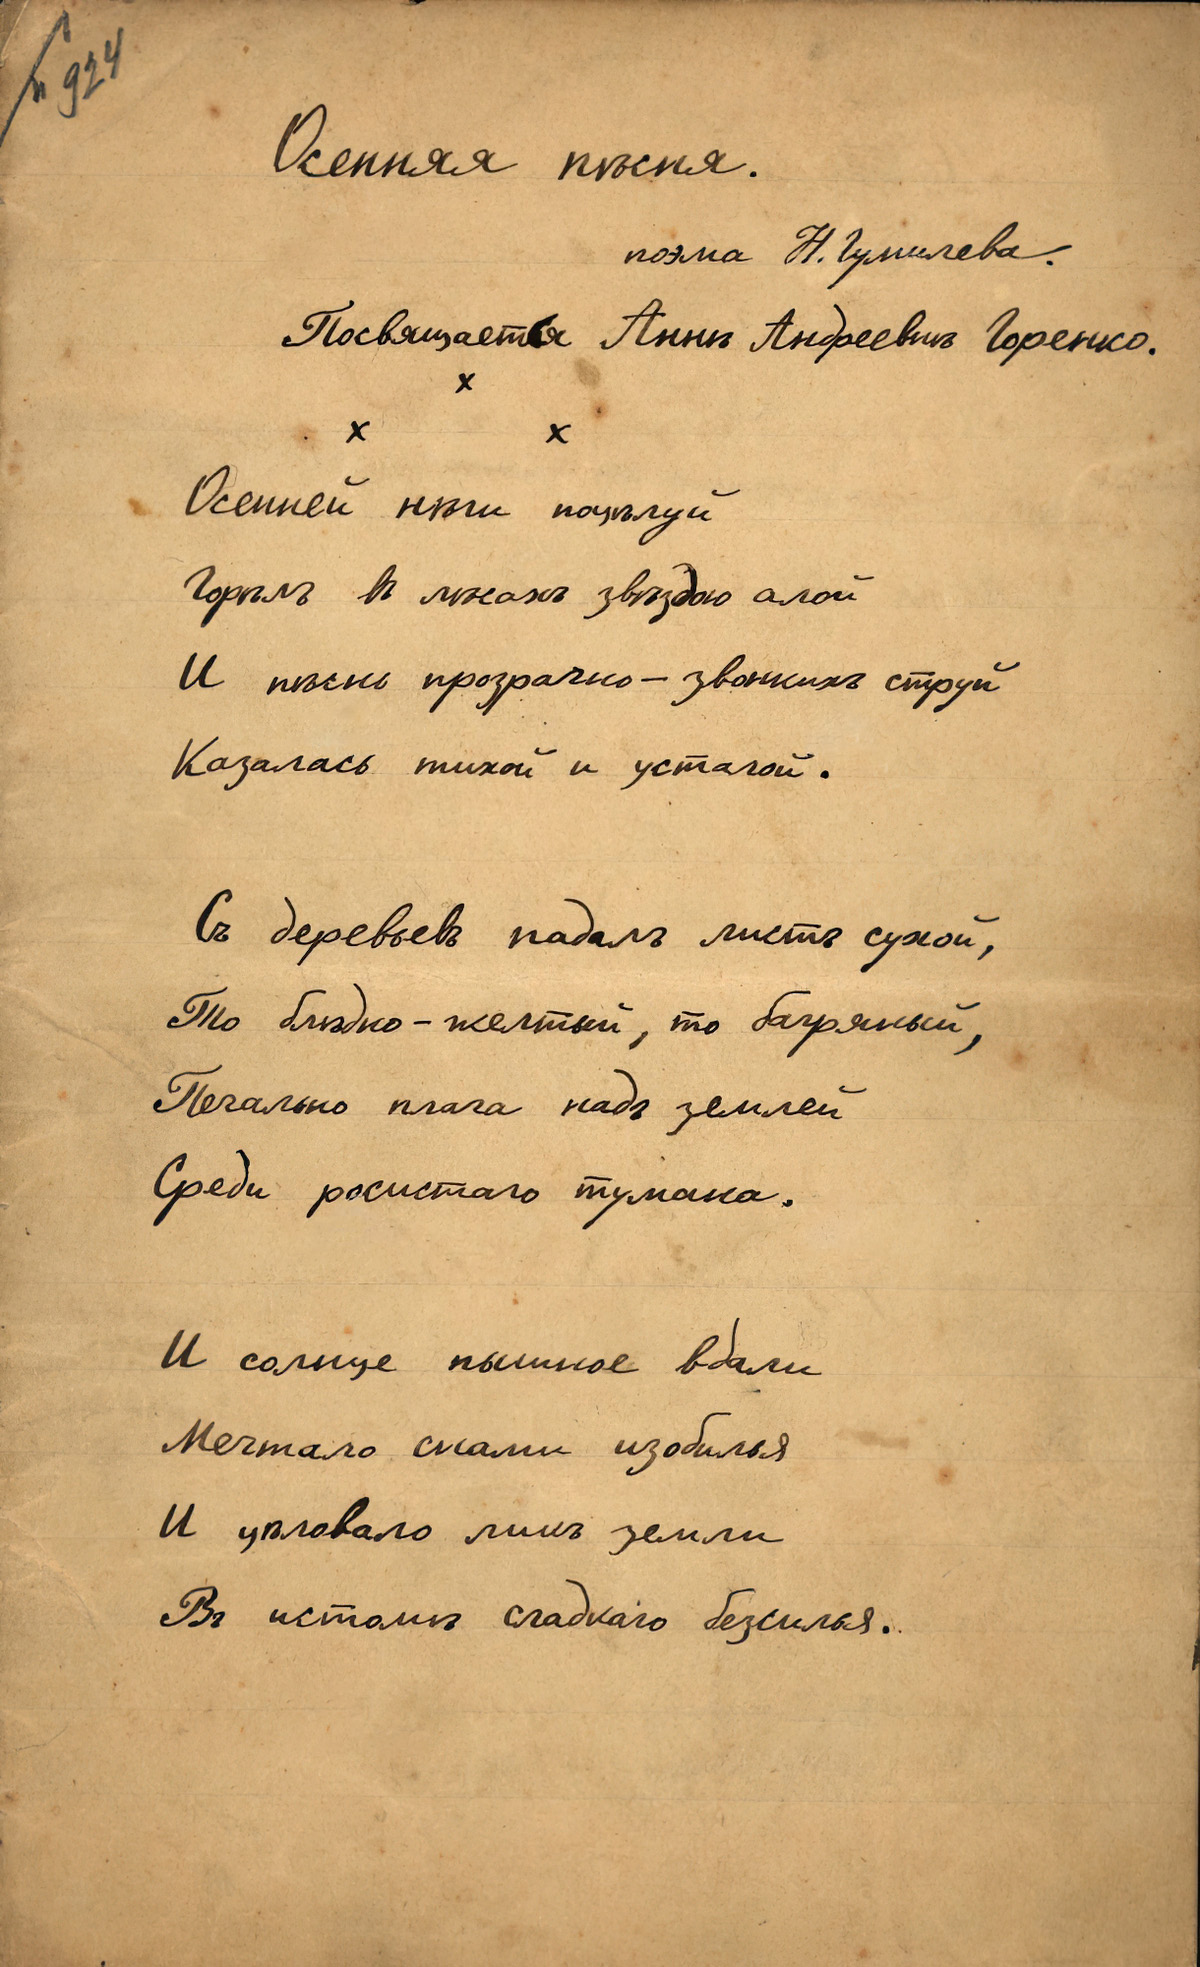 № 924
Осенняя пѣсня.
поэма Н. Гумилева.
Посвящается Аннѣ Андреевнѣ Горенко.
x
x x
Осенней нѣги поцѣлуй
Горѣлъ въ лѣсахъ звѣздою алой
И пѣснь прозрачно-звонкихъ струй
Казалась тихой и усталой.
Съ деревьевъ падалъ листъ сухой,
То блѣдно-желтый, то багряный,
Печально плача надъ землей
Среди росистаго тумана.
И солнце пышное вдали
Мечтало снами изобилья
И цѣловало ликъ земли
Въ истомѣ сладкаго безсилья.